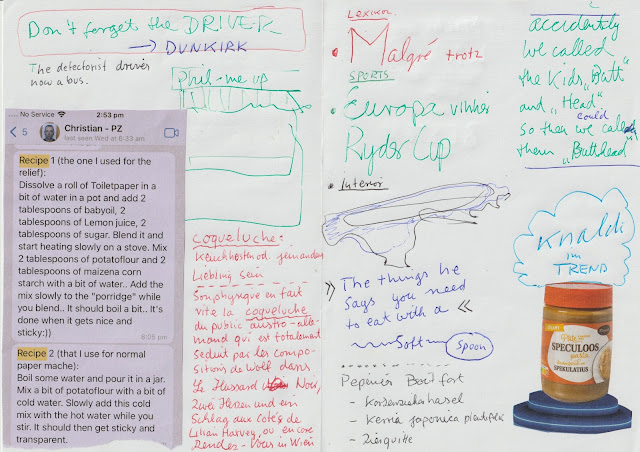 Don't forget the DRIVER
→ DUNKIRK
The detectorist driver
now a bus.
Phil-me up
No Service
2:53 pm
5
Christian - PZ
last seen Wed at 6:33 am
Recipe 1 (the one I used for the
relief):
Dissolve a roll of Toiletpaper in a
bit of water in a pot and add 2
tablespoons of babyoil, 2
tablespoons of Lemon juice, 2
tablespoons of sugar. Blend it and
start heating slowly on a stove. Mix
2 tablespoons of potatoflour and 2
tablespoons of maizena corn
starch with a bit of water.. Add the
mix slowly to the "porridge" while
you blend.. It should boil a bit.. It's
done when it gets nice and
sticky:))
6:05 pm
Recipe 2 (that I use for normal
paper mache):
Boil some water and pour it in a jar.
Mix a bit of potatoflour with a bit of
cold water. Slowly add this cold
mix with the hot water while you
stir. It should then get sticky and
transparent.
coqueluche:
Keuchhusten, jemandes
Liebling sein
Son physique en fait
vite la coqueluche
du public austro-alle-
mand qui est totalement
séduit par les compo-
sitions de Wolf dans
Le Hussard Noir,
Zwei Herzen und ein
Schlag aux côtés de
Lilian Harvey, ou encore
Rendez-Vous in Wien
Lexikon
Malgré trotz
SPORTS
Europa vinher
Ryder Cup
Interior
» The things he
says you need
to eat with a «
Soft Spoon
- Korkenzieherhasel
- Kerria japonica
- Zierquitte
accidently
we called
the kids "Butt"
and "Head"
could
so then we called
them "Butthead"
im
TREND
SPECULOOS
pasta
SPEKULATIUS